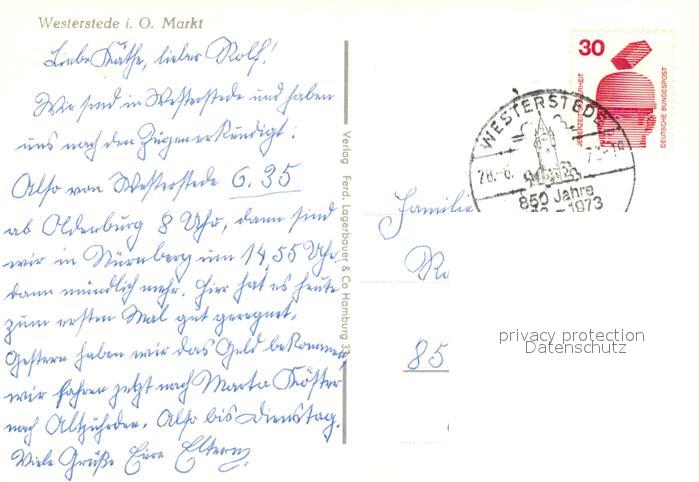 Westerstede i. O. Markt
Liebe Käthe, lieber Rolf!
Wir sind in Westerstede und haben
uns nach den Zügen erkundigt:
Also von Westerstede 6.35
ab Oldenburg 8 Uhr, dann sind
wir in Nürnberg um 14,55 Uhr.
Dann mündlich mehr. Hier hat es heute
zum ersten Mal gut geregnet.
Gestern haben wir das Geld bekommen,
wir fahren jetzt nach Marta Köster
nach Altjührden. Also bis Dienstag.
Viele Grüße Eure Eltern
Verlag Ferd. Lagerbauer & Co Hamburg 33
30
JEDERZEIT SICHERHEIT
DEUTSCHE BUNDESPOST
WESTERSTEDE
28.-6.
73
850 Jahre
1973
Familie
85
privacy protection
Datenschutz